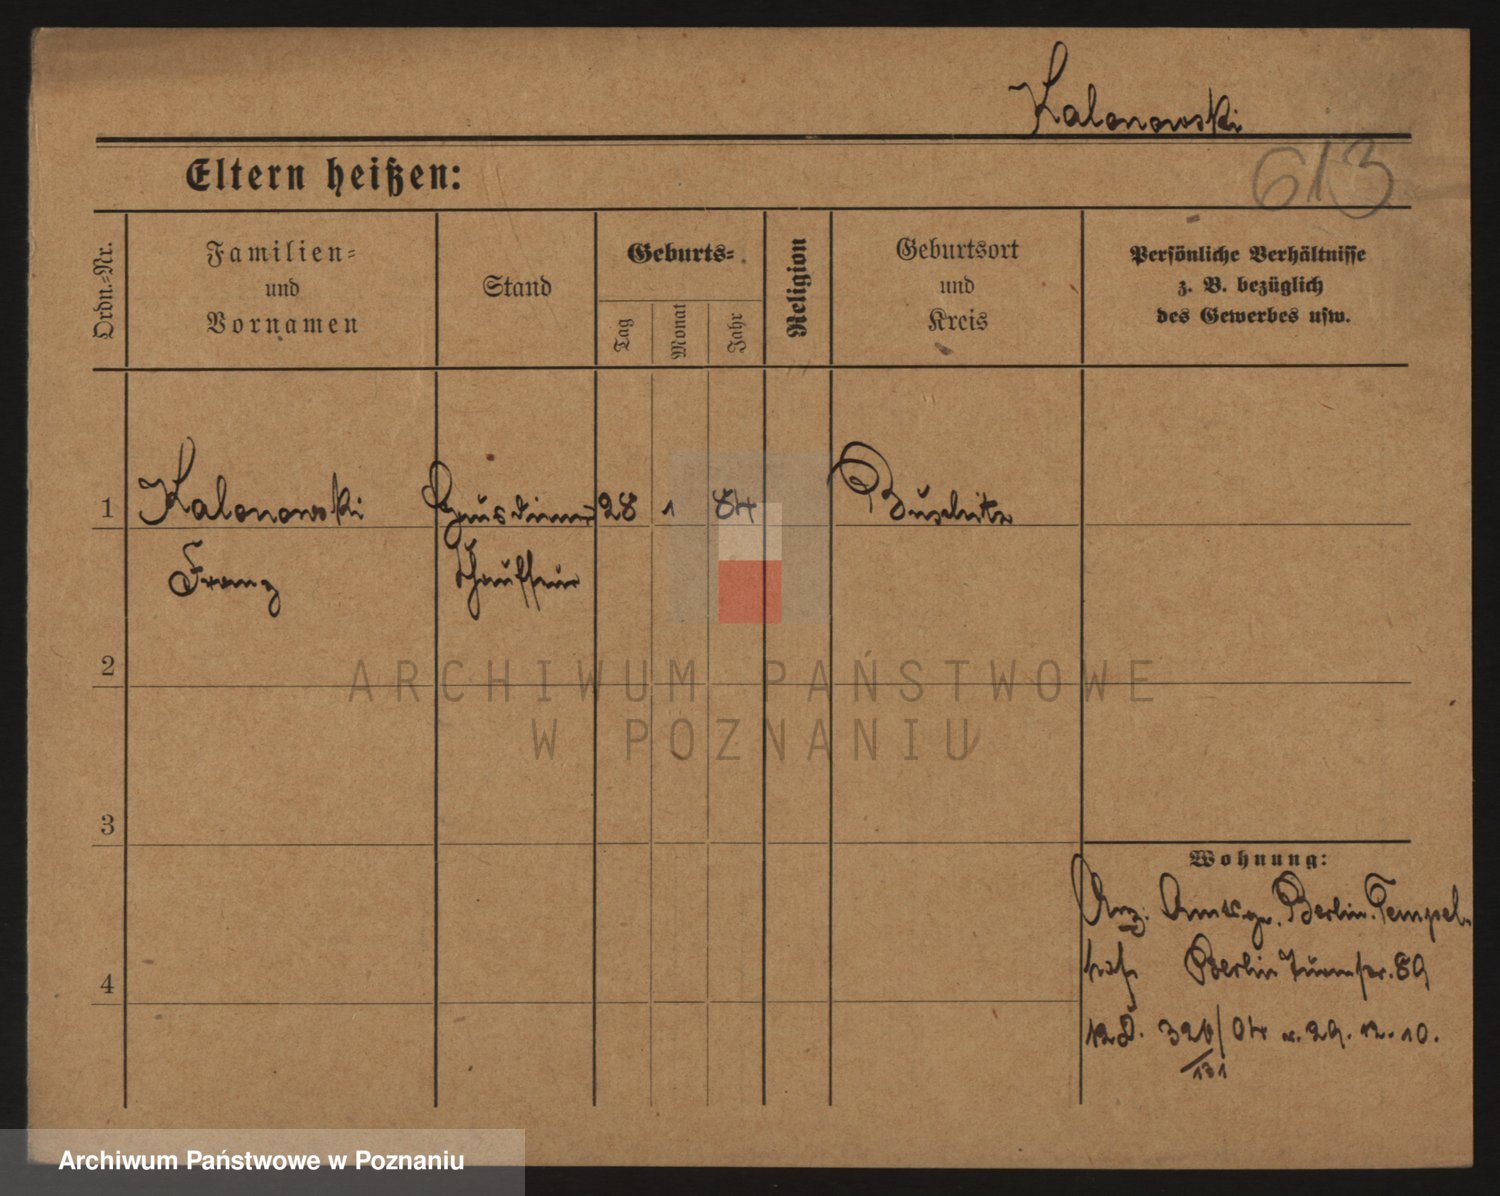 Kalonowski
613
Eltern heißen:
Ordn.-Nr.
Familien-
und
Vornamen
Stand
Geburts-
Tag
Monat
Jahr
Religion
Geburtsort
und
Kreis
Persönliche Verhältnisse
z. B. bezüglich
des Gewerbes usw.
1 Kalonowski Hausdiener 28 1 84
Franz Chauffeur
2
ARCHIWUM PAŃSTWOWE
W POZNANIU
3
Wohnung:
Anz. Amtsger. Berlin-Tempel-
hof Berlin Turmstr. 89
4
12 D. 320/04 v. 29. 12. 10.
131
Archiwum Państwowe w Poznaniu